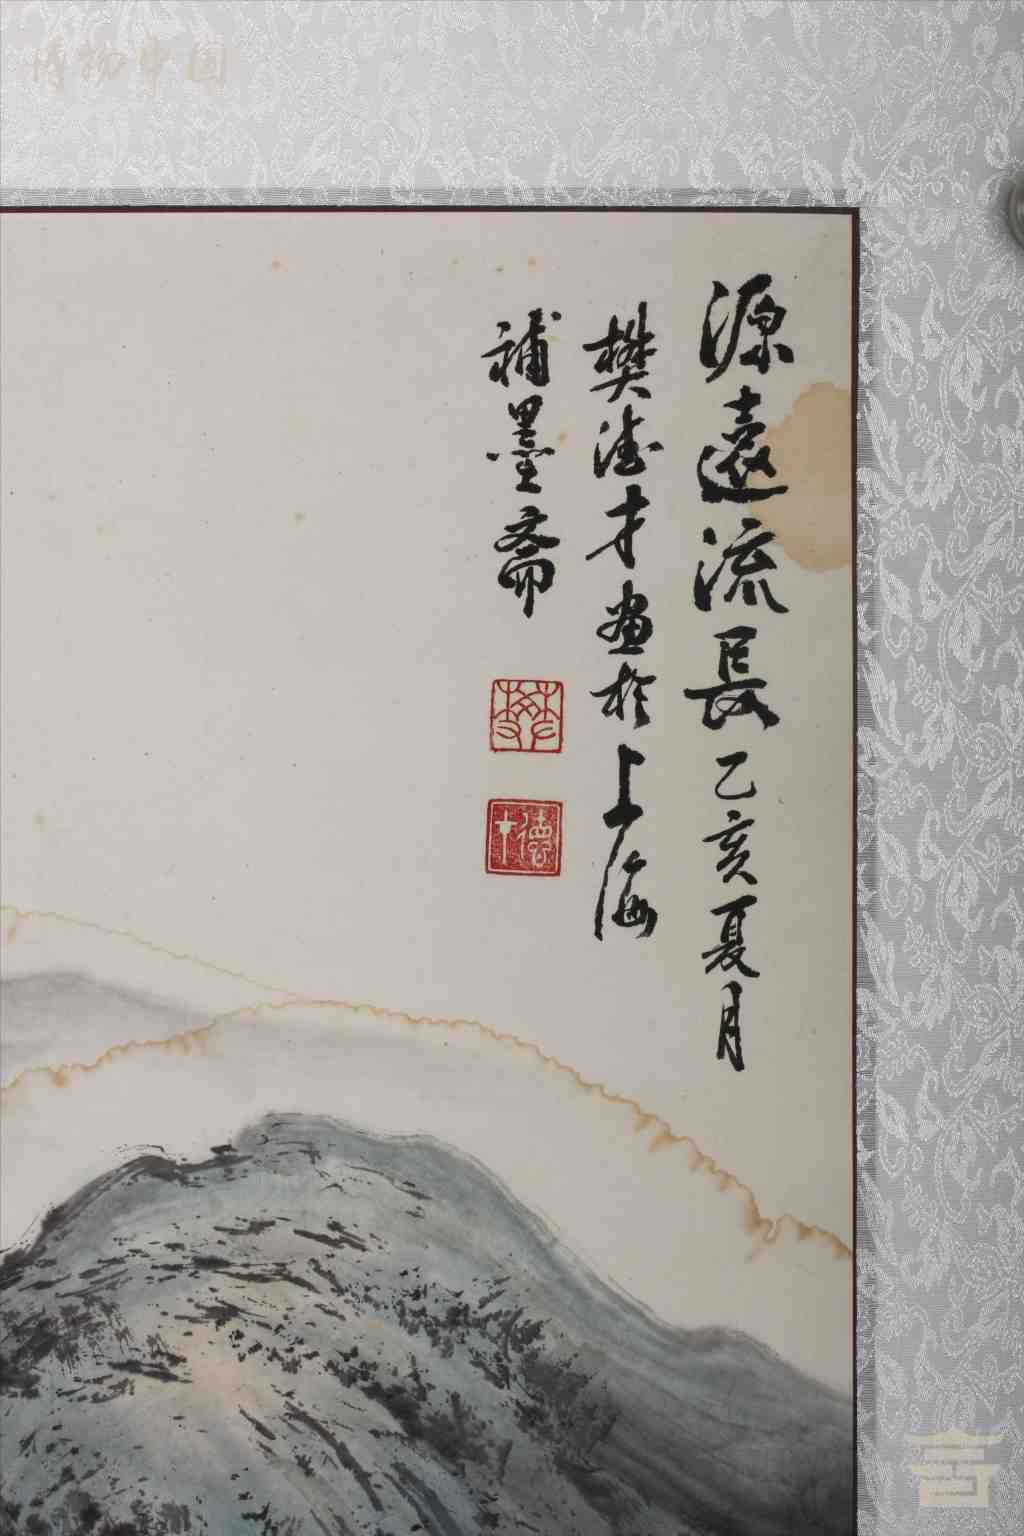 博物中国
源遠流長乙亥夏月
樊德才畫於上海
補墨齋
樊
德才